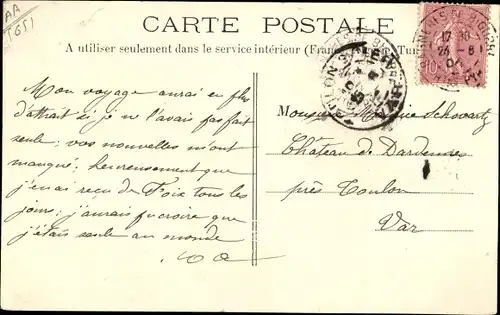 AA
1651
CARTE POSTALE
A utiliser seulement dans le service intérieur (France, Tun
Mon voyage aurai eu plus
d'attrait si je ne l'avais pas fait
seule, vos nouvelles m'ont
manqué; heureusement que
j'en ai reçu de Foix tous les
jours; j'aurais pu croire que
j'étais seule au monde
Monsieur Maurice Schwartz
Château de Dardennes
près Toulon
Var